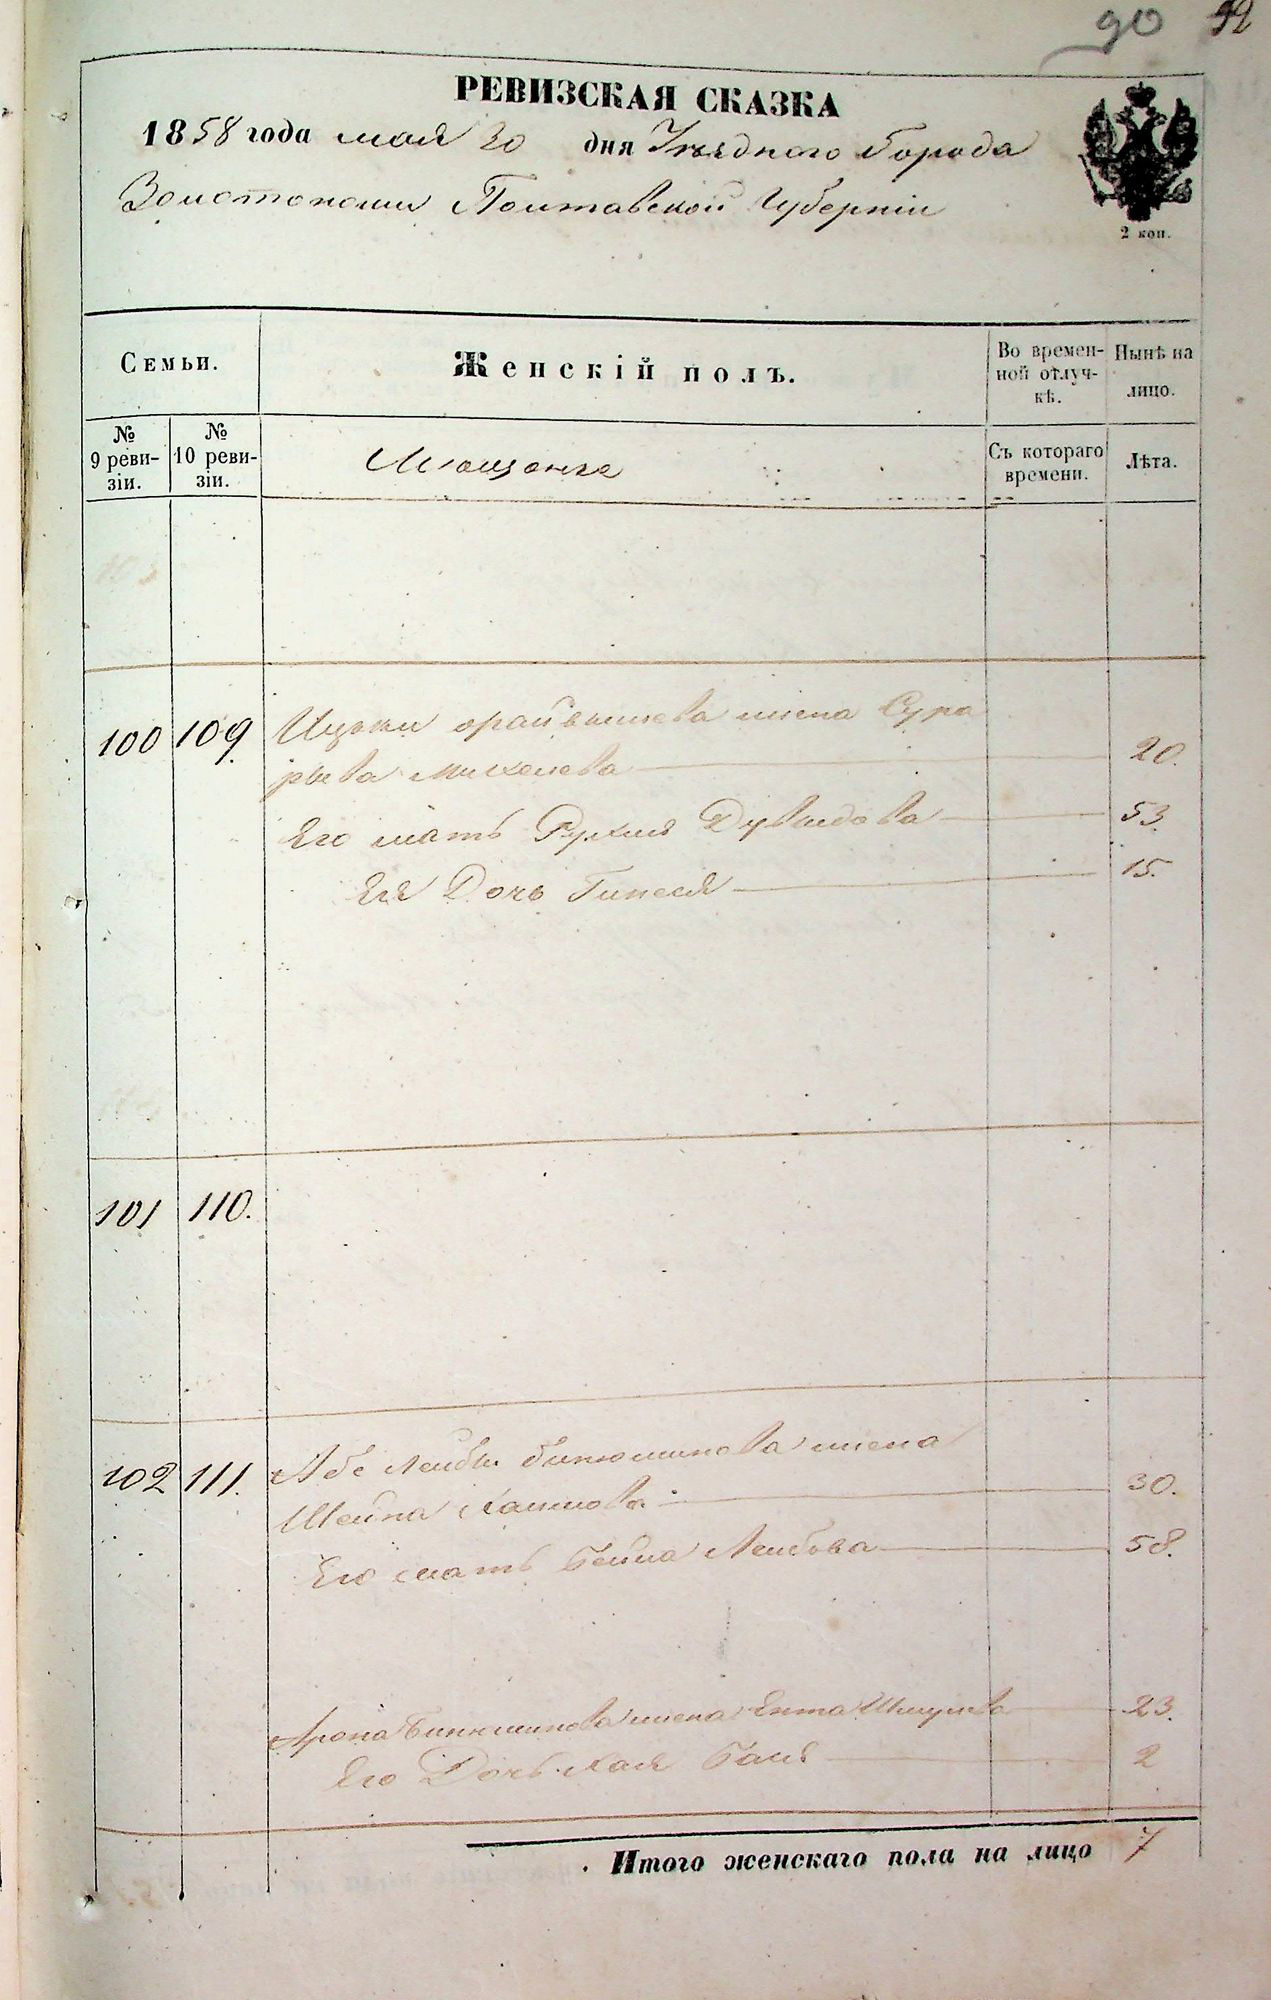 90 92
РЕВИЗСКАЯ СКАЗКА
1858 года мая 30 дня Уѣзднаго Города
Золотоноши Полтавской Губерніи
2 коп.
Семьи.
Женскій полъ.
Во времен-
ной отлуч-
кѣ.
Нынѣ на
лицо.
№
9 реви-
зіи.
№
10 реви-
зіи.
Мѣщанке
Съ котораго
времени.
Лѣта.
100 109 Ицьки жена Сура
Михелева 20.
Его мать Рухля Дувыдова 53.
Ея Дочь Гинеся 15.
101 110.
102 111. Абе Лейбы жена
Шейна Хаимова 30.
Его мать Бейла Лейбова 58.
Арона жена Ента Шмулева 23.
Его Дочь Хая Бася 2
Итого женскаго пола на лицо 7